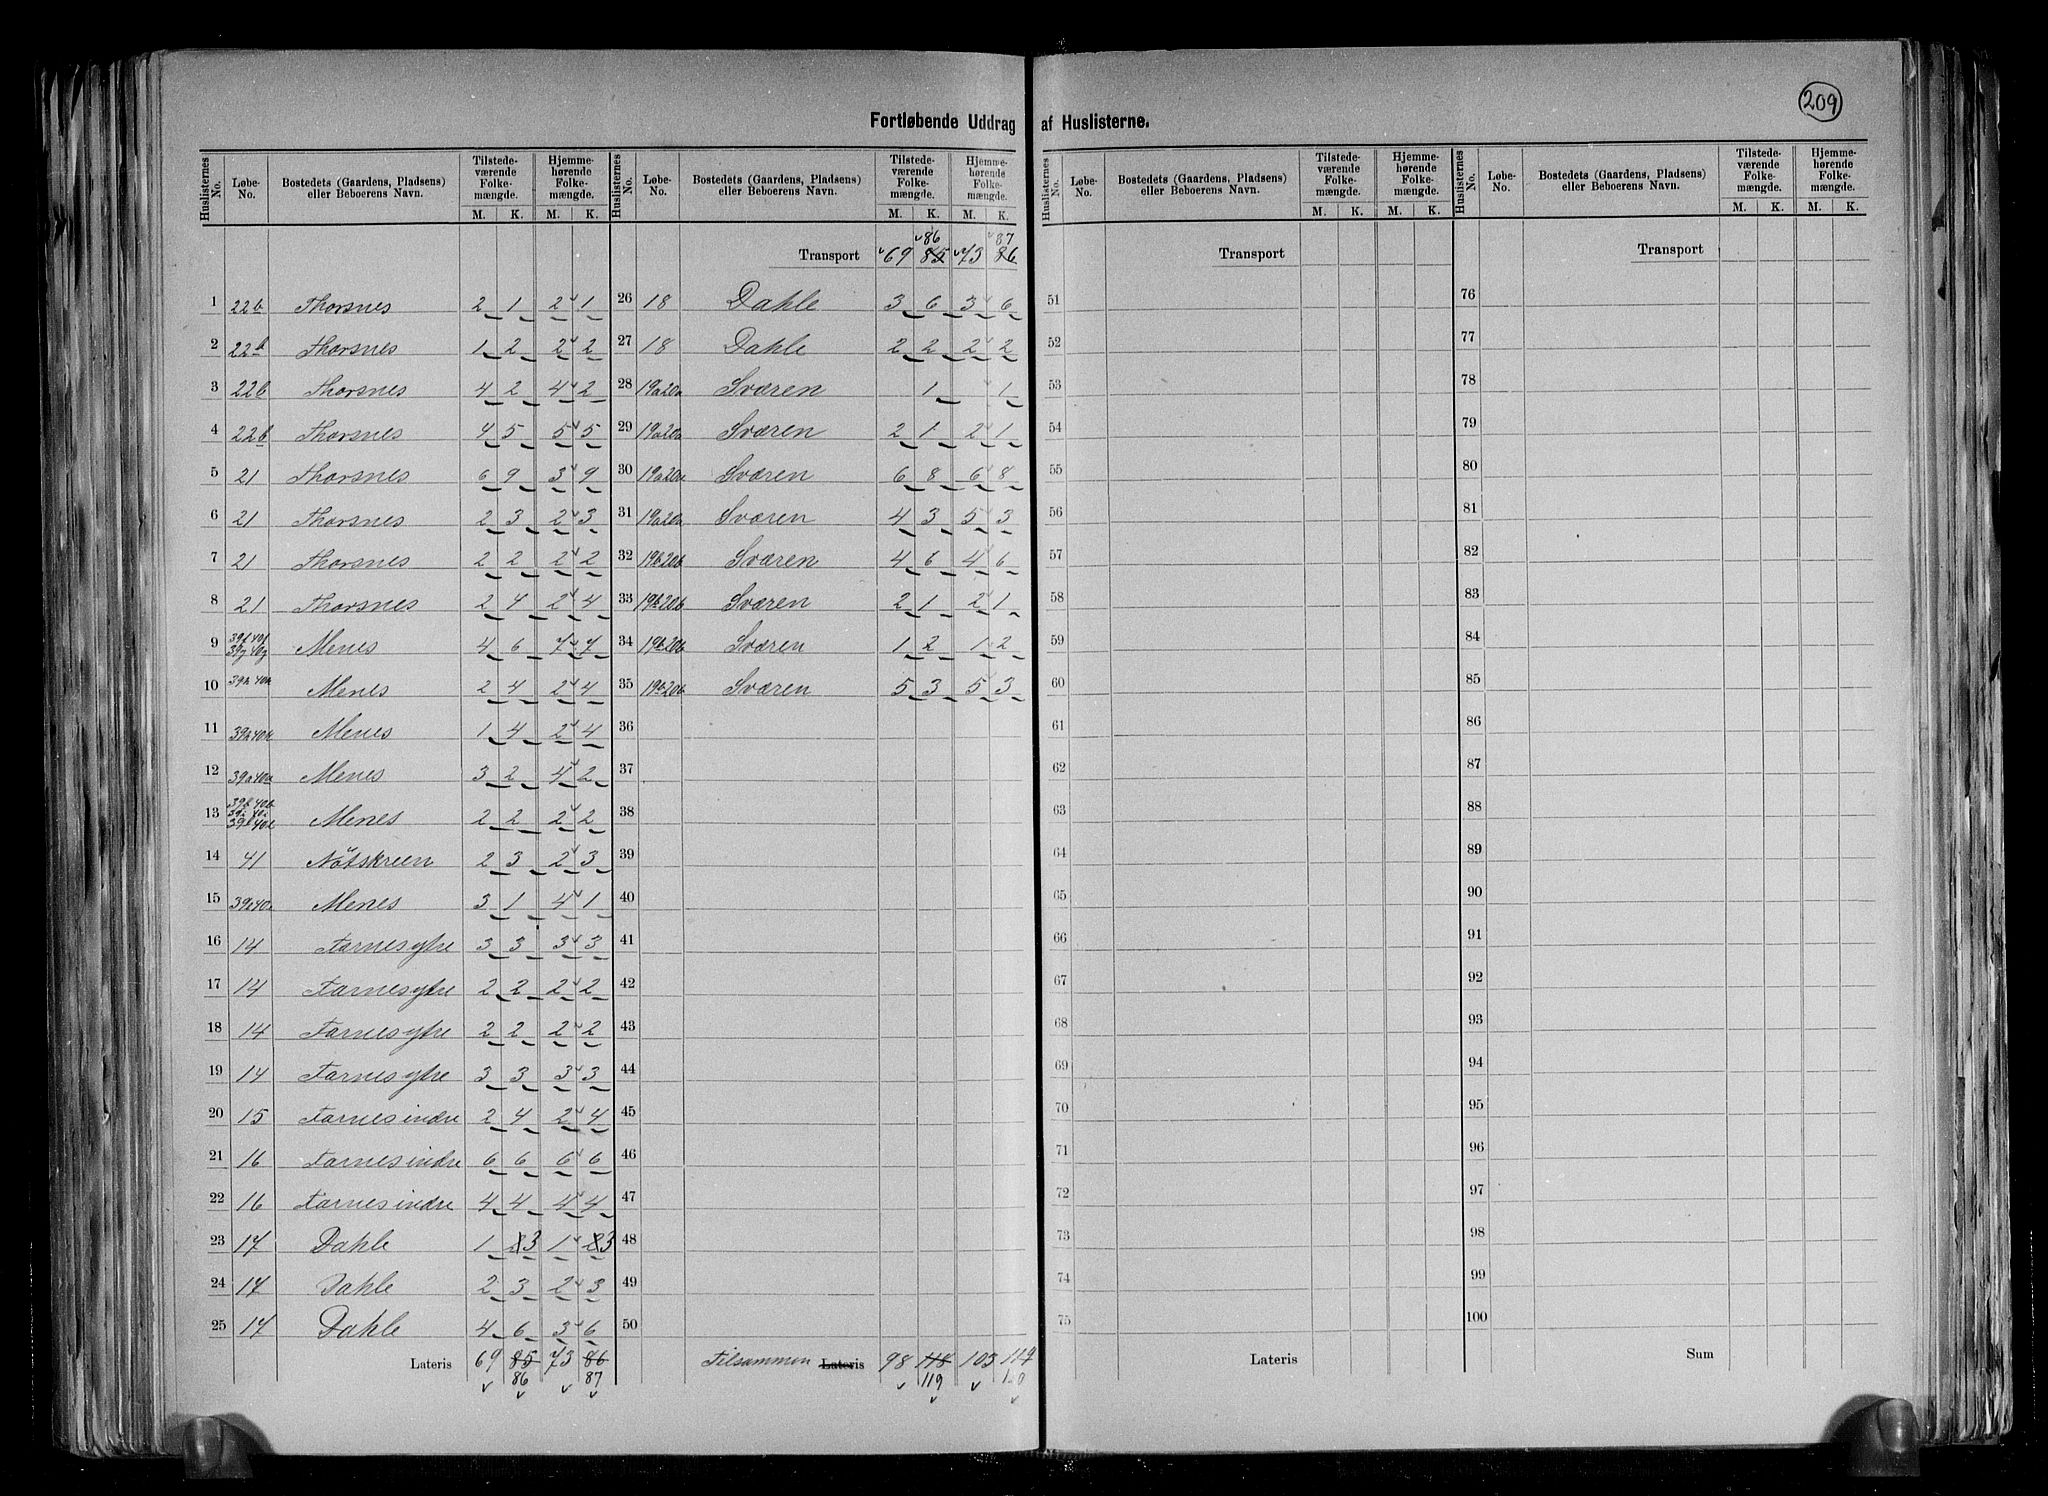 209
Fortløbende Uddrag af Huslisterne.
Huslisternes No. Løbe-No. Bostedets (Gaardens, Pladsens) eller Beboerens Navn. Tilstedeværende Folkemængde. M. K. Hjemmehørende Folkemængde. M. K.
1 22b Thorsnes 2 1 2 1
2 22b Thorsnes 1 2 2 2
3 22b Thorsnes 4 2 4 2
4 22b Thorsnes 4 5 5 5
5 21 Thorsnes 6 9 3 9
6 21 Thorsnes 2 3 2 3
7 21 Thorsnes 2 2 2 2
8 21 Thorsnes 2 4 2 4
9 39f 40f 39g 40g Menes 4 6 7 7
10 39h 40h Menes 2 4 2 4
11 39h 40h Menes 1 4 2 4
12 39a 40a Menes 3 2 4 2
13 39b 40b Menes 2 2 2 2
14 41 Nötskreen 2 3 2 3
15 Menes 3 1 4 1
16 14 Farnes ytre 3 3 3 3
17 14 Farnes ytre 2 2 2 2
18 14 Farnes ytre 2 2 2 2
19 14 Farnes ytre 3 3 3 3
20 15 Farnes indre 2 4 2 4
21 16 Farnes indre 6 6 6 6
22 16 Farnes indre 4 4 4 4
23 17 Dahle 1 2 3 1 2 3
24 17 Dahle 2 3 2 3
25 17 Dahle 4 6 3 6
Lateris 69 85 73 86
86 87
Huslisternes No. Løbe-No. Bostedets (Gaardens, Pladsens) eller Beboerens Navn. Tilstedeværende Folkemængde. M. K. Hjemmehørende Folkemængde. M. K.
86 87
Transport 69 85 73 86
26 18 Dahle 3 6 3 6
27 18 Dahle 2 2 2 2
28 19a 20a Sværen 1 1
29 19a 20a Sværen 2 1 2 1
30 19a 20a Sværen 6 8 6 8
31 19a 20a Sværen 4 3 5 3
32 19b 20b Sværen 4 6 4 6
33 19b 20b Sværen 2 1 2 1
34 19b 20b Sværen 1 2 1 2
35 19b 20b Sværen 5 3 5 3
36
37
38
39
40
41
42
43
44
45
46
47
48
49
50
Tilsammen Lateris 98 118 103 119
119
Huslisternes No. Løbe-No. Bostedets (Gaardens, Pladsens) eller Beboerens Navn. Tilstedeværende Folkemængde. M. K. Hjemmehørende Folkemængde. M. K.
Transport
51
52
53
54
55
56
57
58
59
60
61
62
63
64
65
66
67
68
69
70
71
72
73
74
75
Lateris
Huslisternes No. Løbe-No. Bostedets (Gaardens, Pladsens) eller Beboerens Navn. Tilstedeværende Folkemængde. M. K. Hjemmehørende Folkemængde. M. K.
Transport
76
77
78
79
80
81
82
83
84
85
86
87
88
89
90
91
92
93
94
95
96
97
98
99
100
Sum